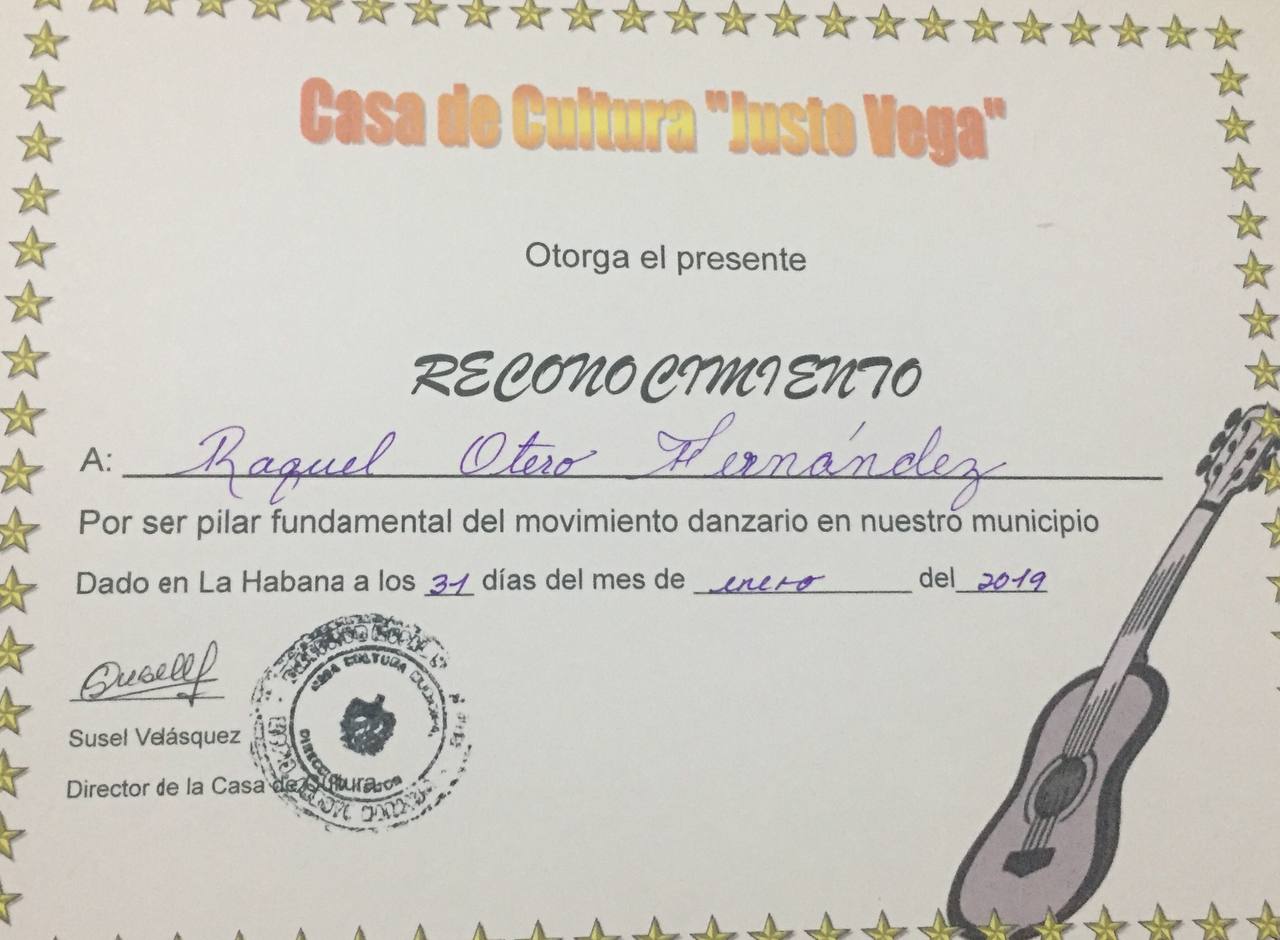 Casa de Cultura "Justo Vega"
Otorga el presente
RECONOCIMIENTO
A: Raquel Otero Hernández
Por ser pilar fundamental del movimiento danzario en nuestro municipio
Dado en La Habana a los 31 días del mes de enero del 2019
Susell
CASA CULTURA
Susel Velásquez
Director de la Casa de Cultura